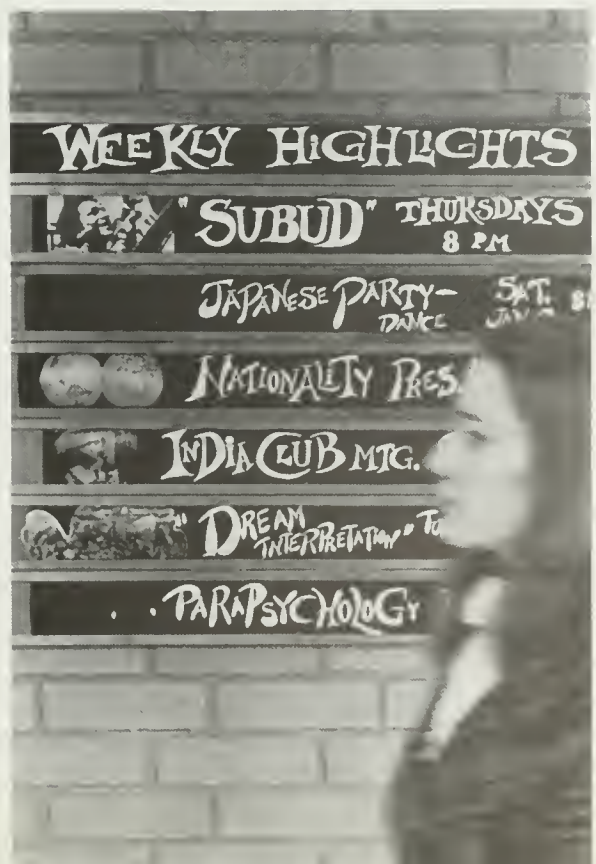 WEEKLY HIGHLIGHTS
"SUBUD" THURSDAYS
8 PM
JAPANESE PARTY- SAT.
DANCE
NATIONALITY PRES.
INDIA CLUB MTG.
"DREAM
INTERPRETATION"
. . PARAPSYCHOLOGY